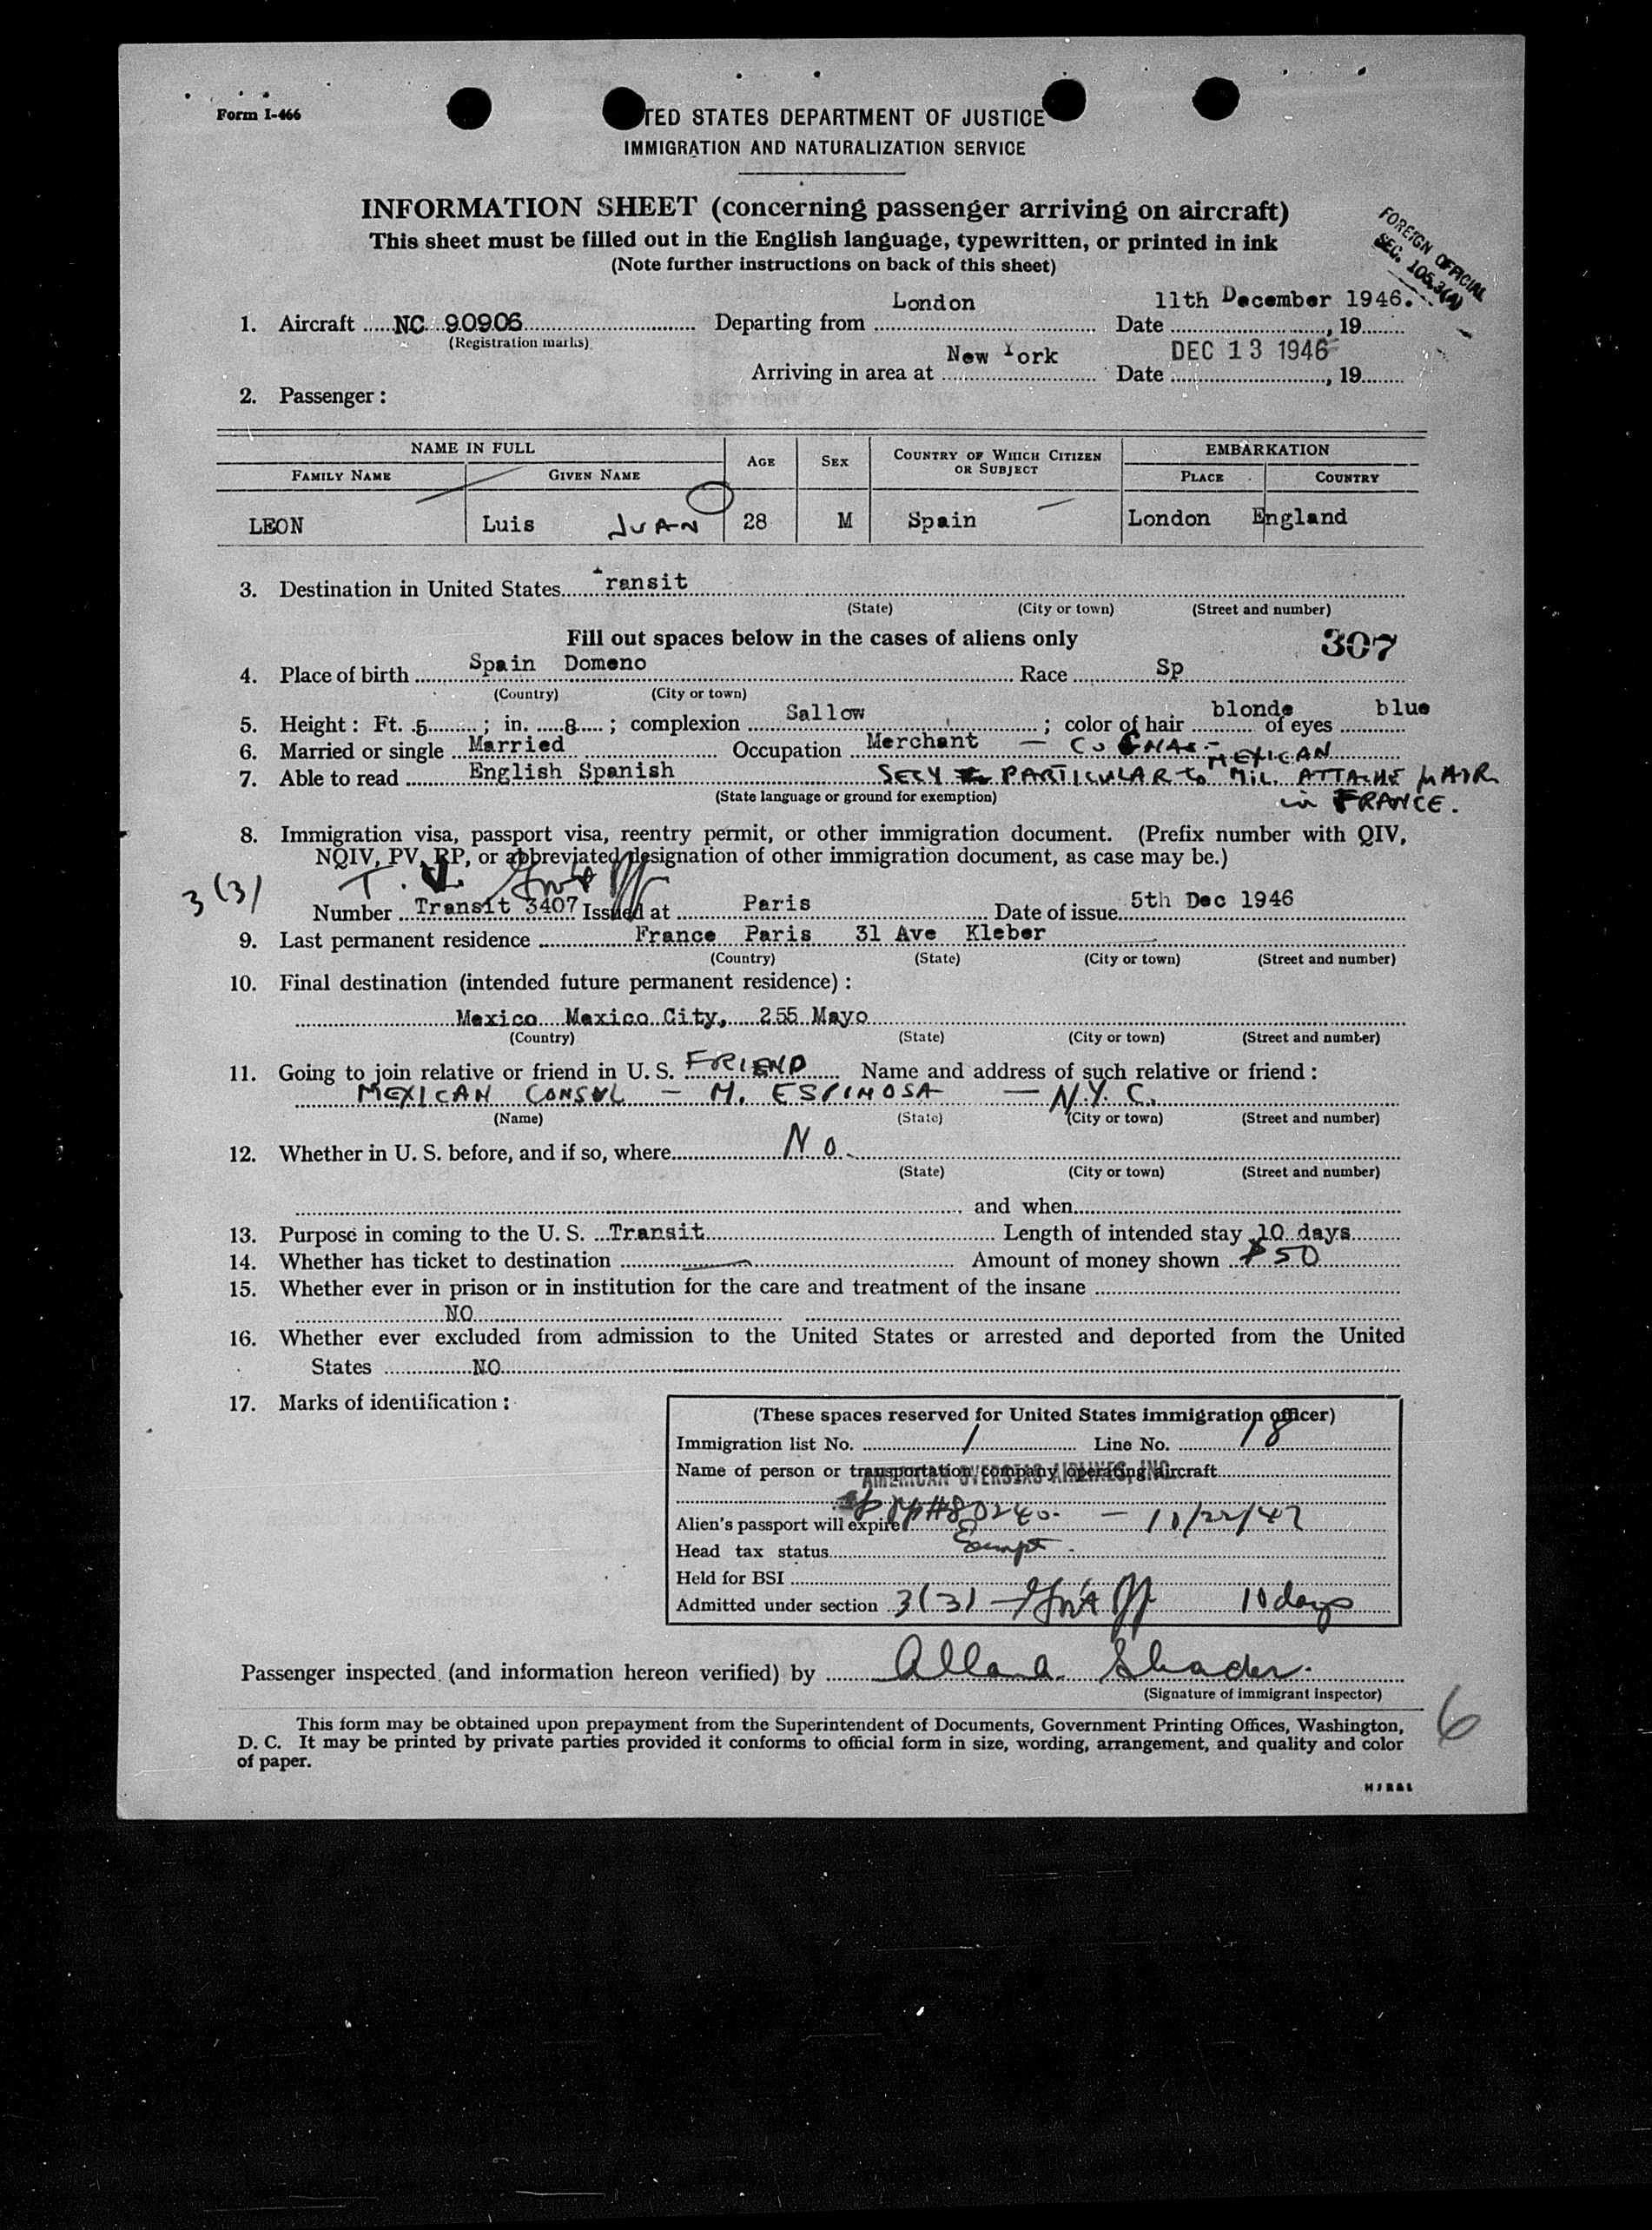 Form I-466
TED STATES DEPARTMENT OF JUSTICE
IMMIGRATION AND NATURALIZATION SERVICE
INFORMATION SHEET (concerning passenger arriving on aircraft)
This sheet must be filled out in the English language, typewritten, or printed in ink
(Note further instructions on back of this sheet)
FOREIGN OFFICIAL
SEC. 105.3(A)
1. Aircraft NC 90906 Departing from London Date 11th December 1946. , 19
(Registration marks)
Arriving in area at New York Date DEC 13 1946 , 19
2. Passenger:
NAME IN FULL AGE SEX COUNTRY OF WHICH CITIZEN OR SUBJECT EMBARKATION
FAMILY NAME GIVEN NAME PLACE COUNTRY
LEON Luis JUAN 28 M Spain London England
3. Destination in United States Transit
(State) (City or town) (Street and number)
Fill out spaces below in the cases of aliens only
307
4. Place of birth Spain Domeno Race Sp
(Country) (City or town)
5. Height: Ft. 5 ; in. 8 ; complexion Sallow ; color of hair blonde of eyes blue
6. Married or single Married Occupation Merchant — MEXICAN
7. Able to read English Spanish SECY PARTICULAR to MIL. ATTACHE AIR
(State language or ground for exemption) in FRANCE.
8. Immigration visa, passport visa, reentry permit, or other immigration document. (Prefix number with QIV,
NQIV, PV, RP, or abbreviated designation of other immigration document, as case may be.)
3(3) T.V. Gov't Off
Number Transit 3407 Issued at Paris Date of issue 5th Dec 1946
9. Last permanent residence France Paris 31 Ave Kleber
(Country) (State) (City or town) (Street and number)
10. Final destination (intended future permanent residence):
Mexico Mexico City, 255 Mayo
(Country) (State) (City or town) (Street and number)
11. Going to join relative or friend in U. S. FRIEND Name and address of such relative or friend:
MEXICAN CONSUL — M. ESPINOSA — N.Y.C.
(Name) (State) (City or town) (Street and number)
12. Whether in U. S. before, and if so, where No.
(State) (City or town) (Street and number)
and when
13. Purpose in coming to the U. S. Transit Length of intended stay 10 days
14. Whether has ticket to destination — Amount of money shown $50
15. Whether ever in prison or in institution for the care and treatment of the insane
NO
16. Whether ever excluded from admission to the United States or arrested and deported from the United
States NO
17. Marks of identification:
(These spaces reserved for United States immigration officer)
Immigration list No. 1 Line No. 18
Name of person or transportation company operating aircraft
AMERICAN OVERSEAS AIRLINES, INC.
Alien's passport will expire #80240 — 10/22/47
Head tax status Exempt.
Held for BSI
Admitted under section 3(3) — Gov't Off 10 days
Passenger inspected (and information hereon verified) by Allan A. Shader.
(Signature of immigrant inspector)
This form may be obtained upon prepayment from the Superintendent of Documents, Government Printing Offices, Washington,
D. C. It may be printed by private parties provided it conforms to official form in size, wording, arrangement, and quality and color
of paper.
6